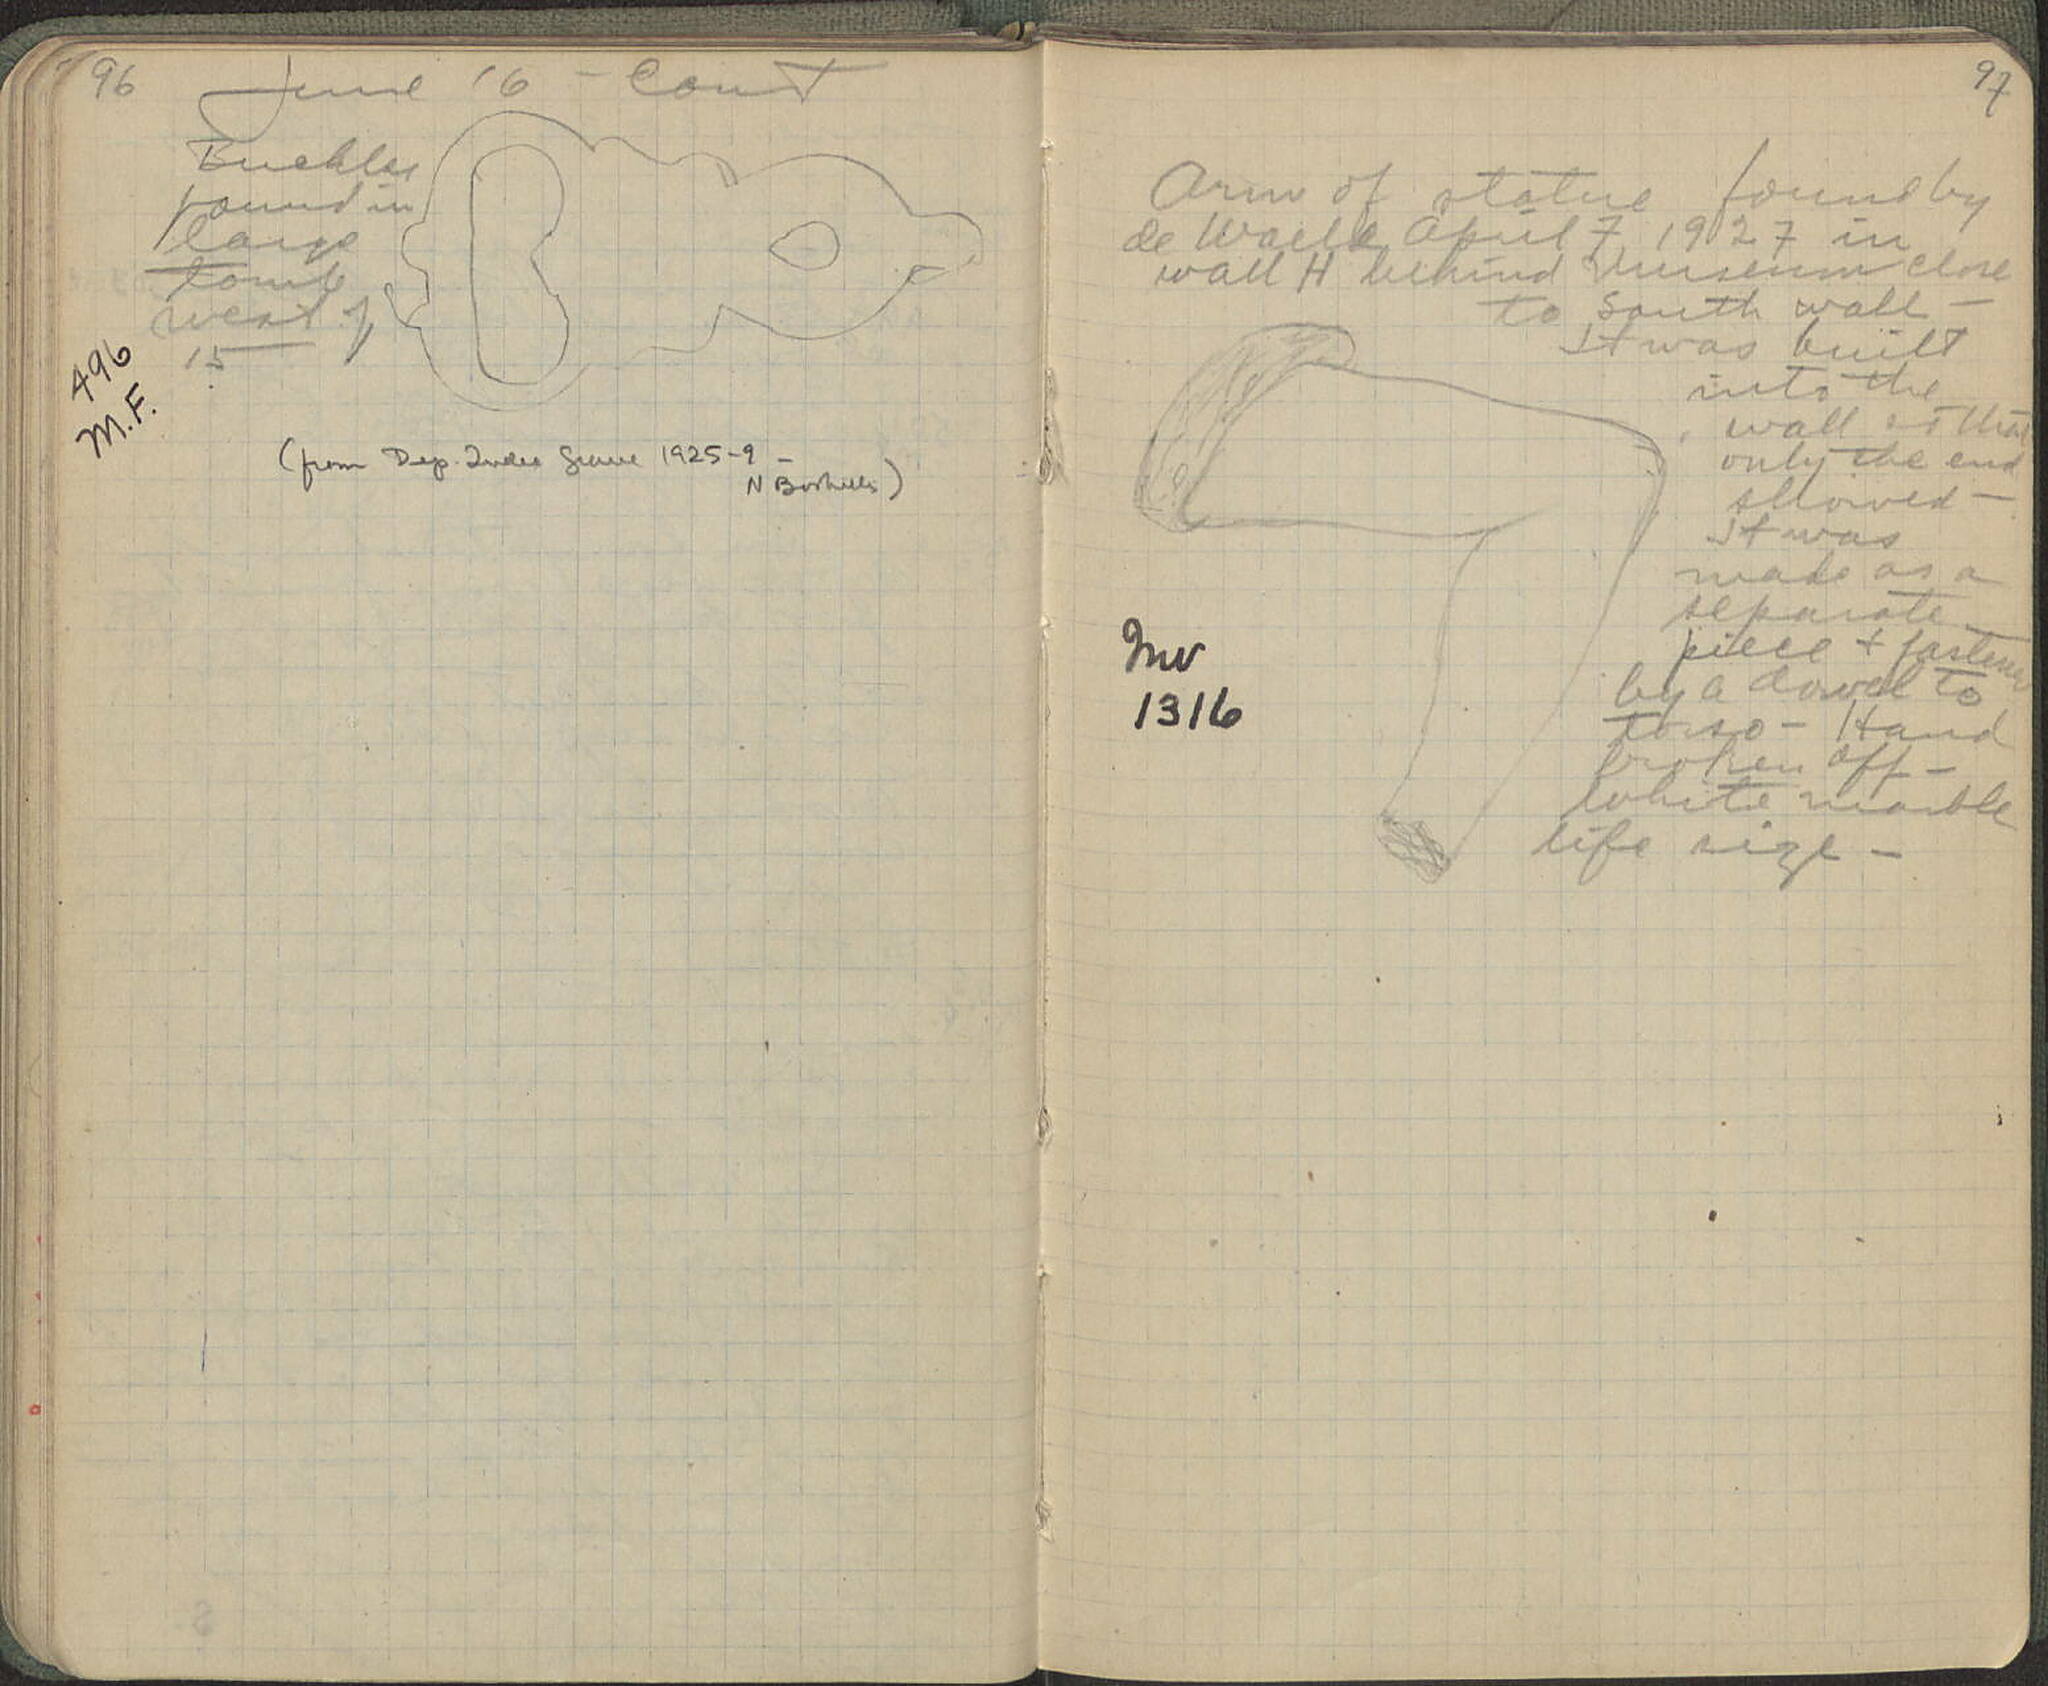 96
June 16 - Cont
Buckles
found in
large
tomb
west of
15
496
M.F.
(from Dep. Index Grave 1925-9 -
N )
97
Arm of statue found by
de Waele April 7 1927 in
wall H behind Museum close
to South wall -
It was built
into the
wall so that
only the end
showed -
It was
made as a
separate
piece + fastened
by a dowel to
torso - Hand
broken off -
White marble
life size -
Inv
1316